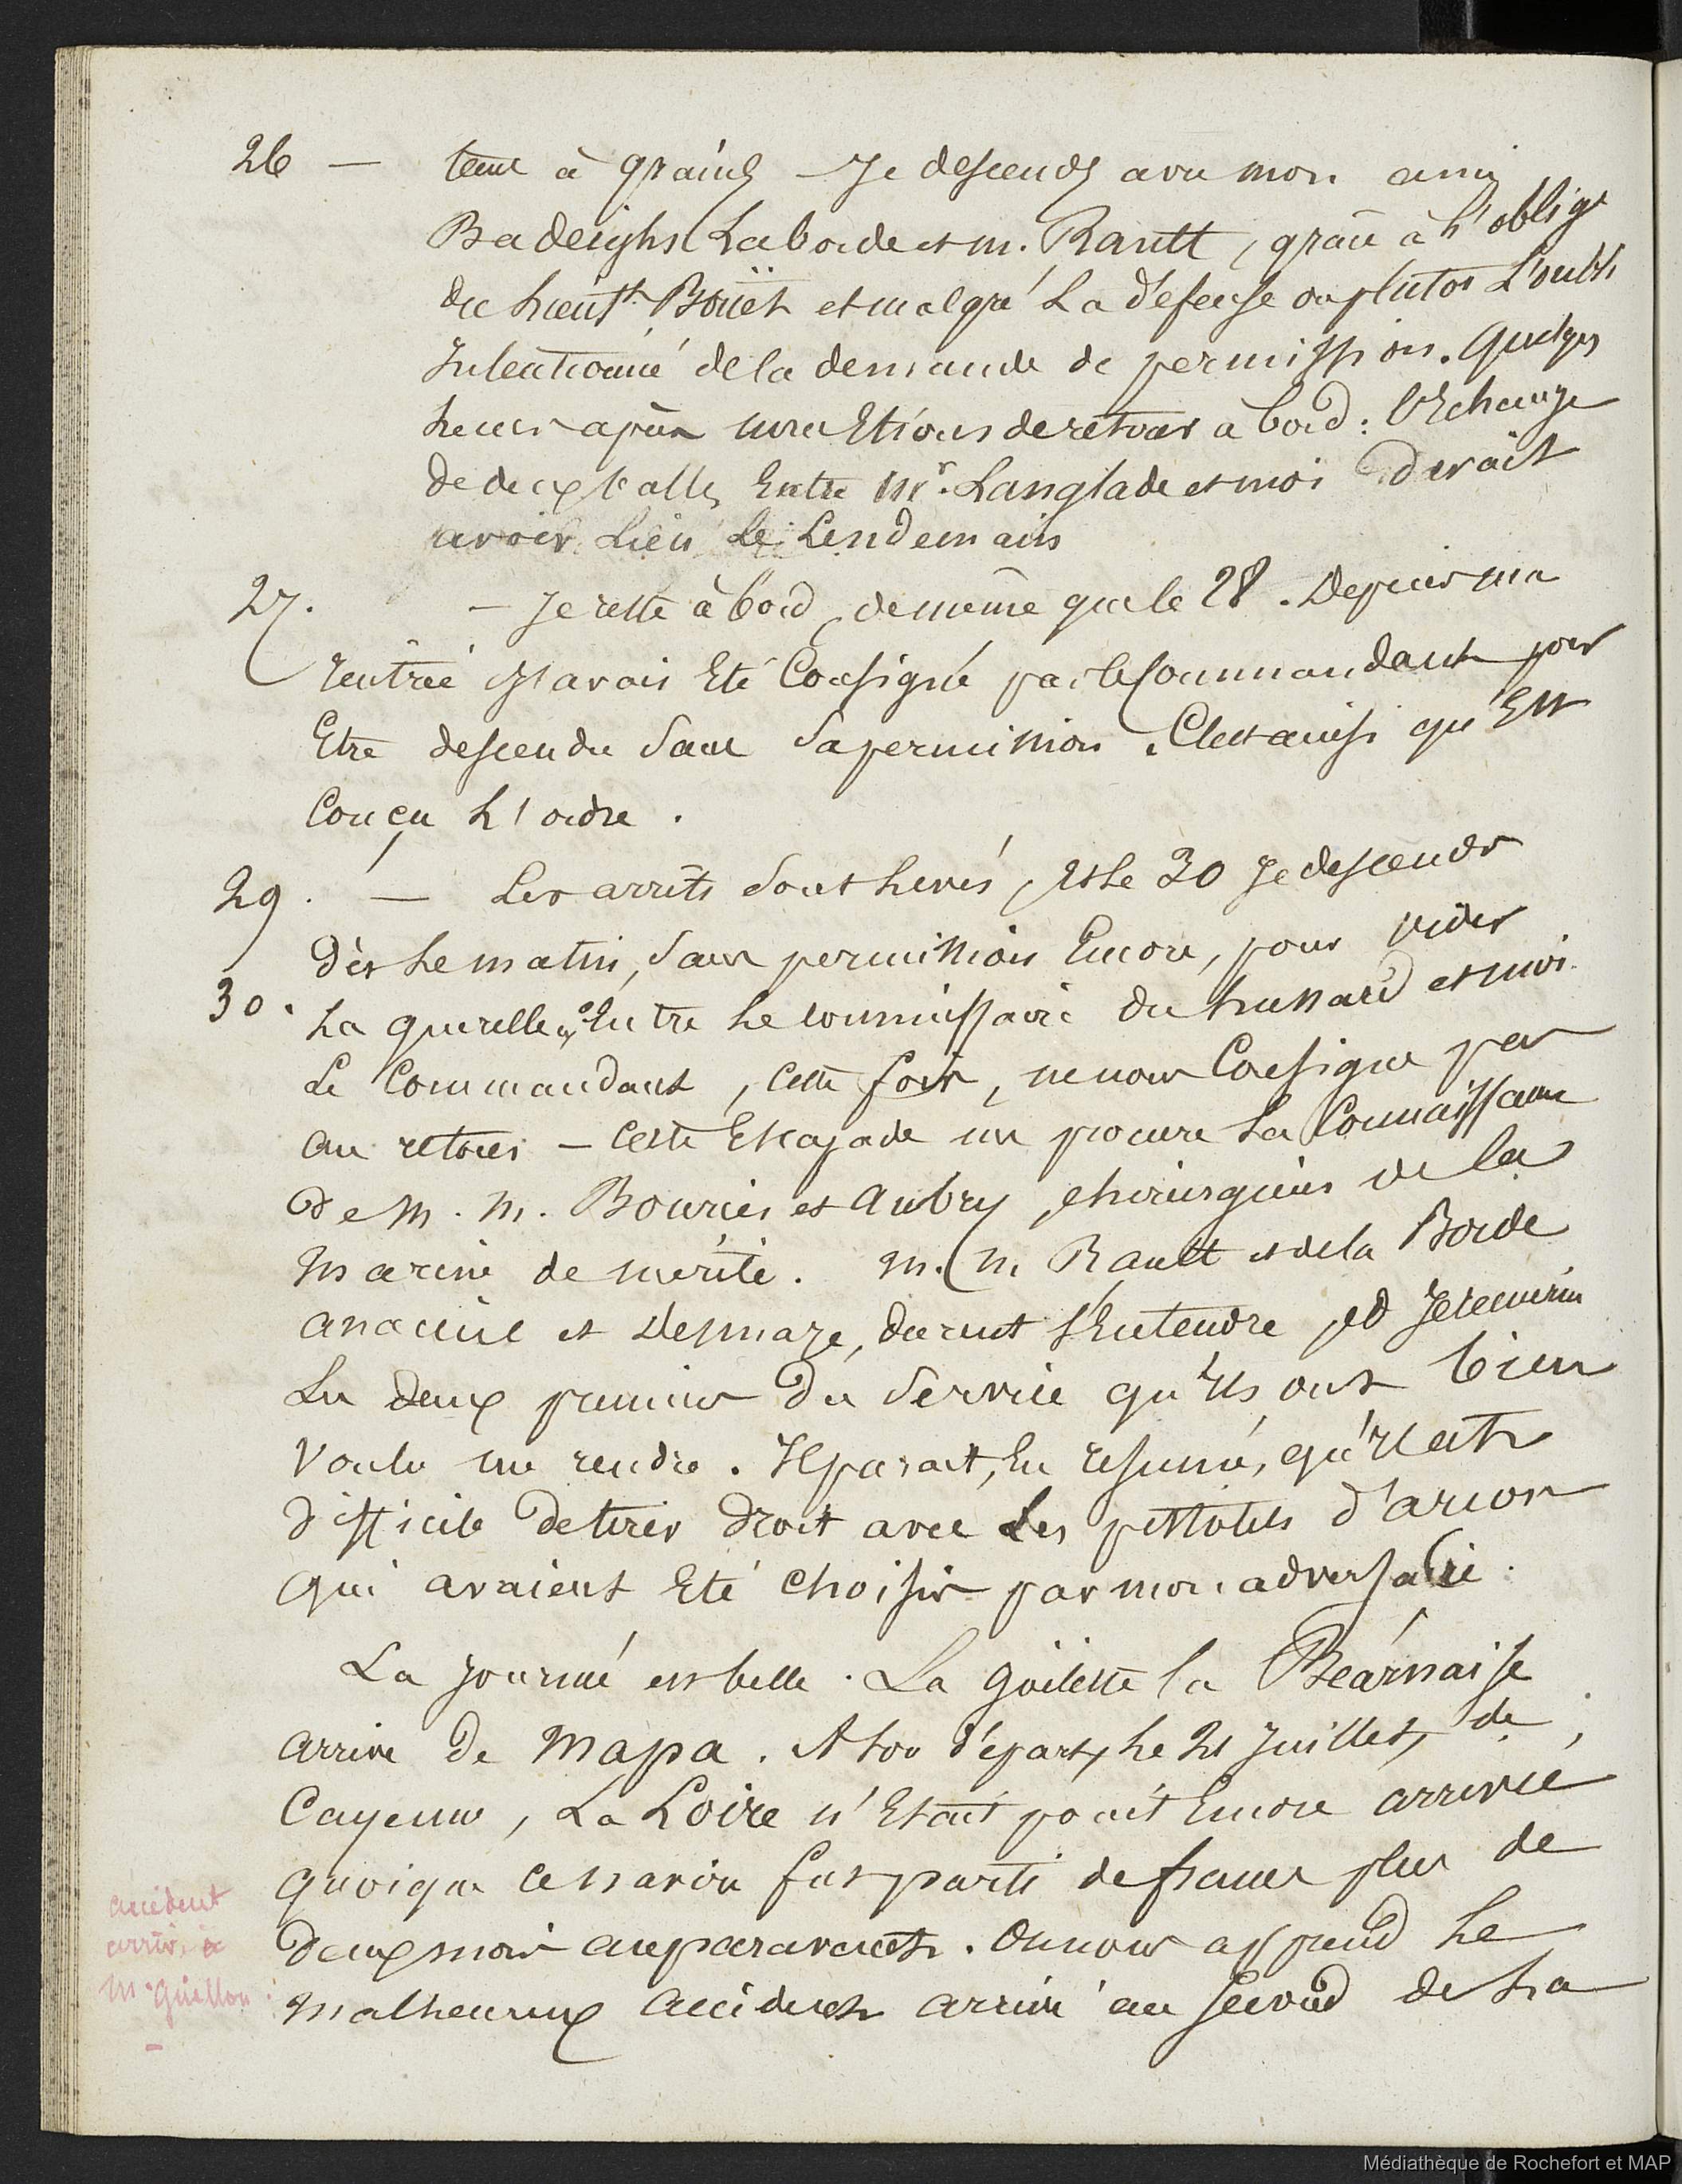 26 — tems à grains — Je descends avec mon ami
Badeighs Laborde et m. Rault, grace à l'oblige
du lieut.t Bouët et malgré La défense ou plutot L'oubli
Intentionné de la demande de permission. Quelques
heures après nous Etions de retour à bord : L'Echange
de deux balles Entre Mr. Langlade et moi devait
avoir Lieu Le Lendemain
27. — Je reste à bord, de même que le 28. Depuis ma
rentrée J'avais Eté Consigné par le Commandant pour
Etre descendu sans sa permission. C'est ainsi qu'Est
Conçu L'ordre.
29. — Les arrêts sont Levés, Et Le 30 Je descends
Dès Le matin, sans permission Encore, pour vider
30. La querelle Entre Le commissaire du hussard et moi.
Le Commandant, cette fois, ne nous Consigne pas
au retour — Cette Escapade me procure La Connaissance
De M. M. Bouriès et Aubry, chirurgiens de la
marine de mérite. M. M. Rault et de la Borde
et Demaze, durent s'Entendre, Et Je remercie
Les deux premiers Du Service qu'Ils ont bien
Voulu me rendre. Il parait, En résumé, qu'Il est
difficile De tirer droit avec Les pistolets d'arçon
qui avaient Eté choisis par mon adversaire.
La Journée est belle. La Goëlette la Béarnaise
arrive de Mapa. A son départ, Le 21 Juillet, de
Cayenne, La Loire n'Etait point Encore arrivée
quoique ce navire fut parti de france plus de
Deux mois auparavant. On nous apprend Le
malheureux accident arrivé au Second de La
accident
arrivé à
Mr Guillou